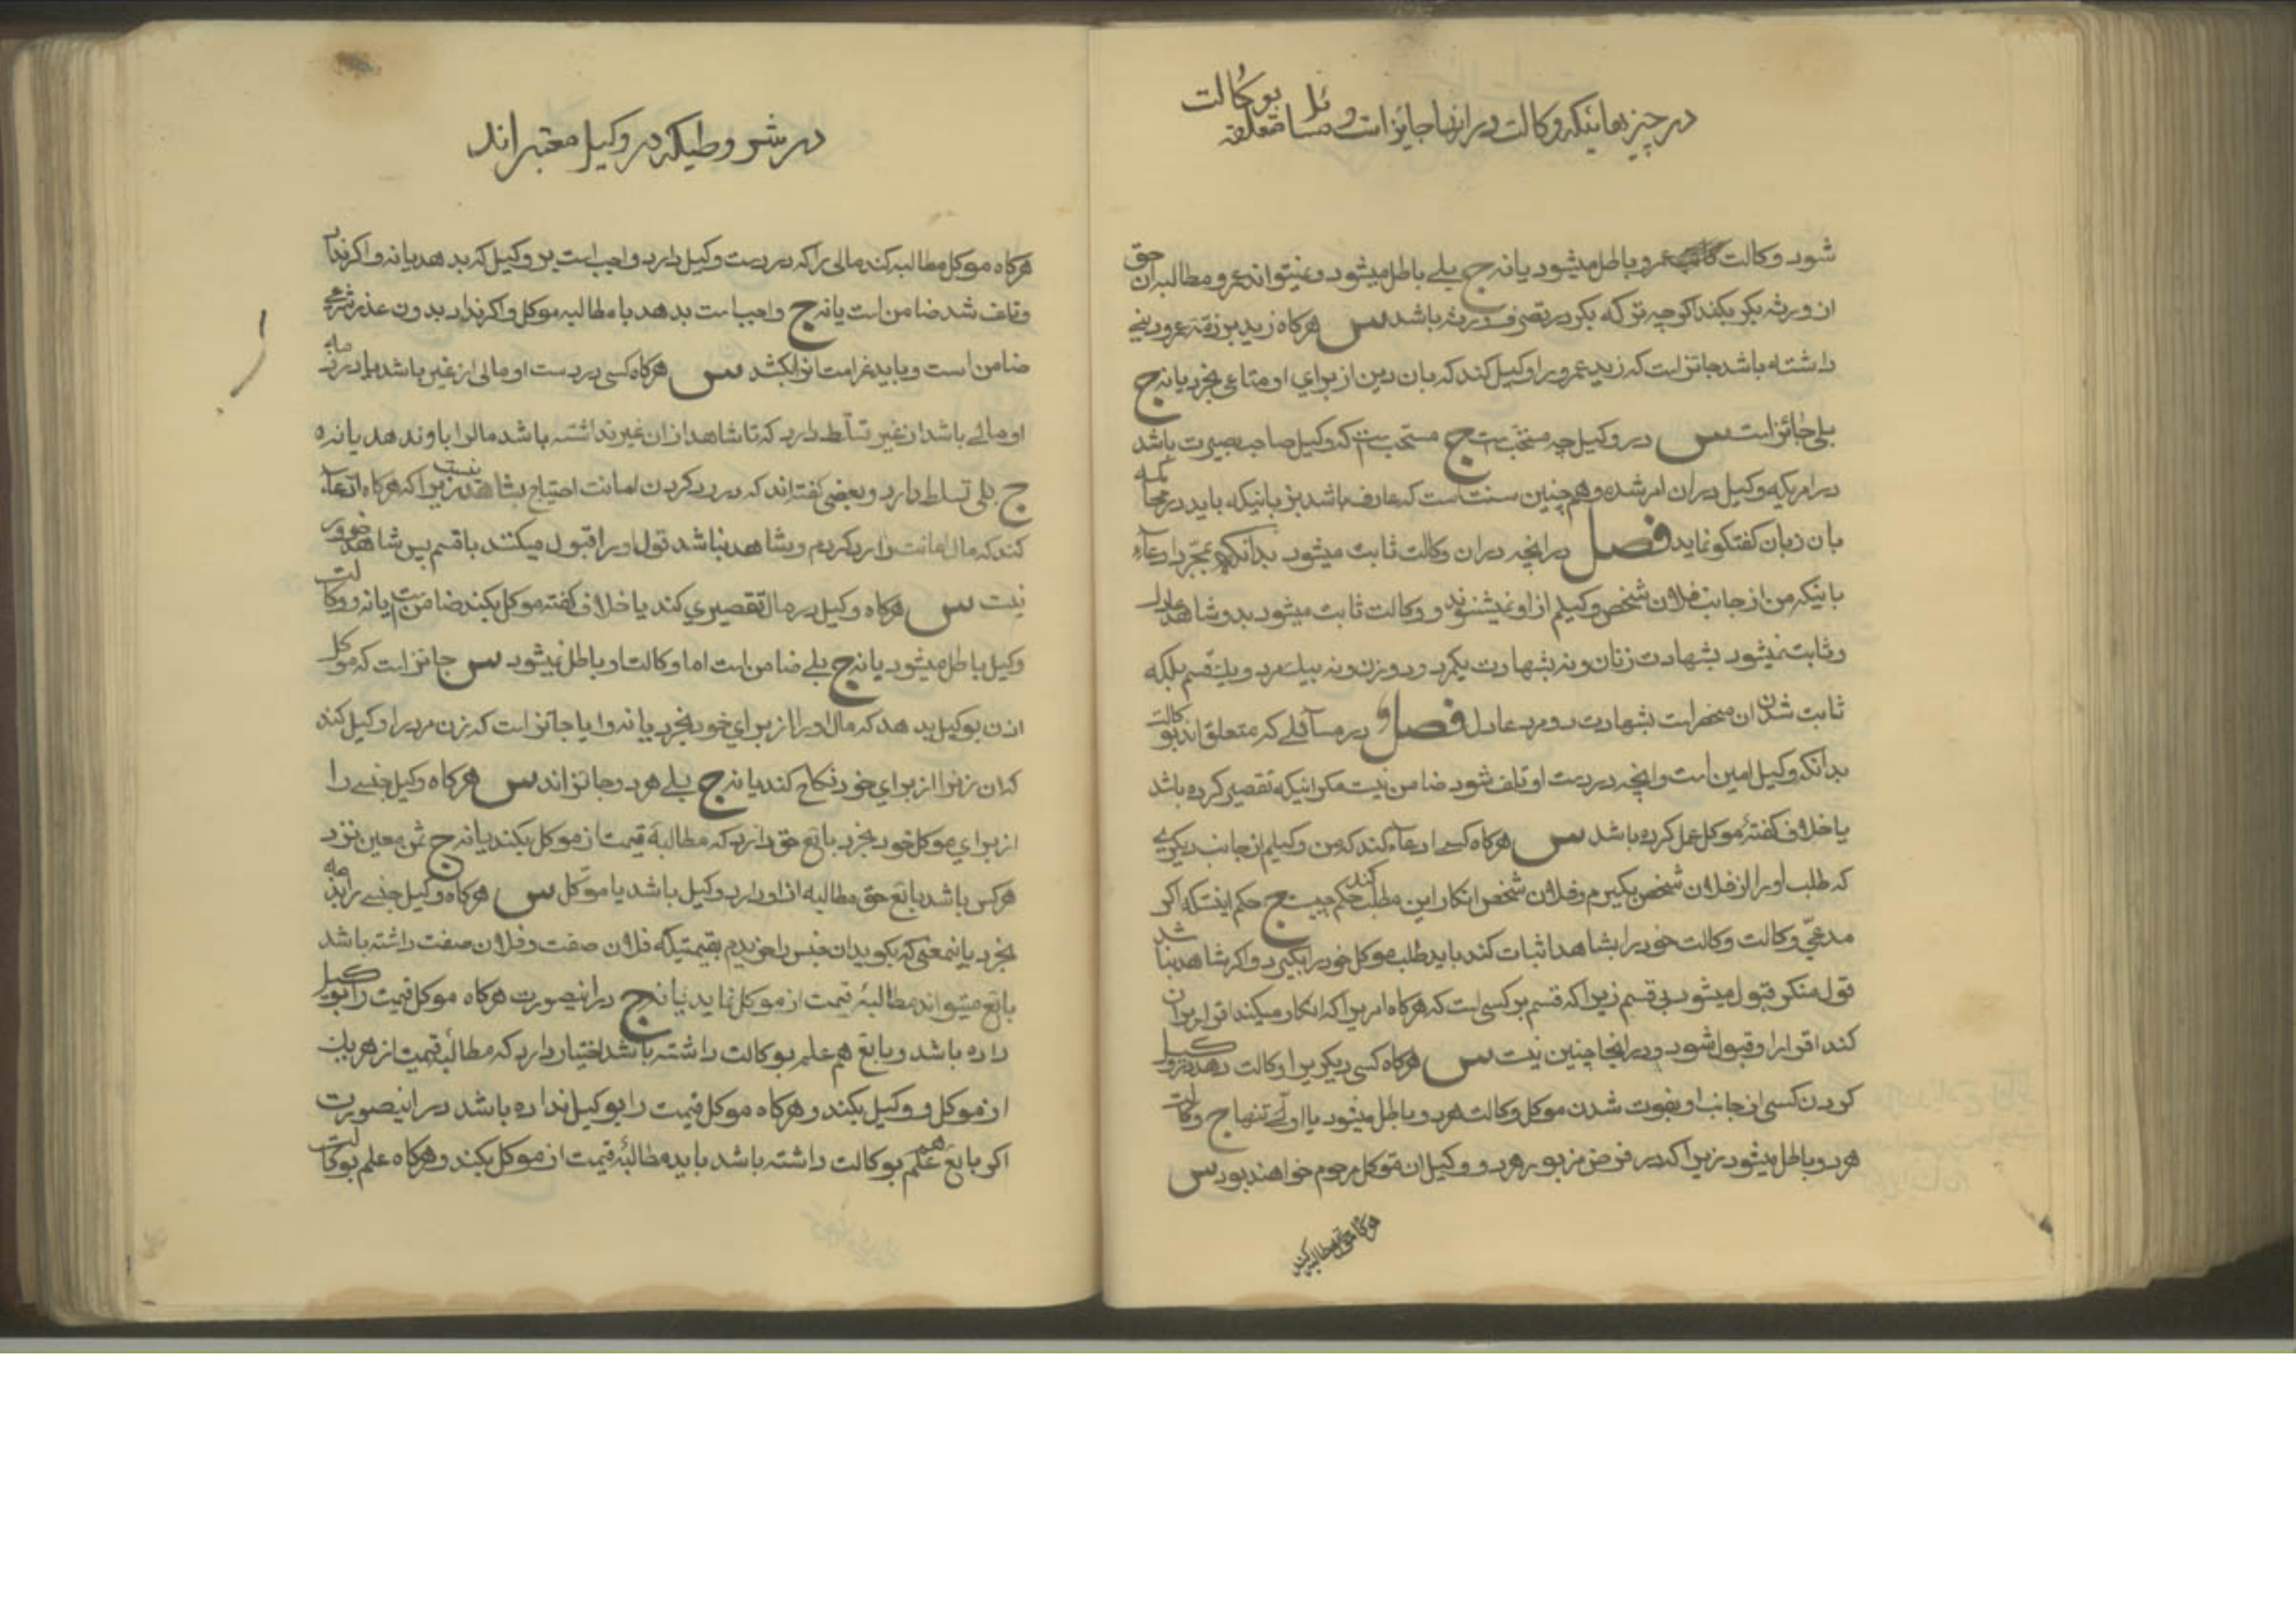 در چیزهائیکه وکالت در آنها جائز است و مسائل متعلقه بوکالت
شود وکالت عمرو باطل میشود یا نه ج بلے باطل میشود و نمیتواند عمرو مطالبه آن حق
از ورثه بکر بکند اکرچه ترکه بکر در تصرف ورثه باشد س هرکاه زید بر ذمّه عمرو دینے
داشته باشد جائز است که زید عمرو را وکیل کند که بان دین از برای او متاعی بخرد یا نه ج
بلی جائز است س در وکیل چه مستحبّ است ج مستحب است که وکیل صاحب بصیرت باشد
در امریکه وکیل در ان امر شده و هم چنین سنت است که عارف باشد بزبانیکه باید در محاکمه
بان زبان کفتکو نماید فصل در انچه در ان وکالت ثابت میشود بدانکه بمجرّد ادعاء
باینکه من از جانب فلان شخص وکیلم از او نمیشنوند و وکالت ثابت میشود بدو شاهد عادل
و ثابت نمیشود بشهادت زنان و نه بشهادت یکمرد و دو زن و نه بیک مرد و یک قسم بلکه
ثابت شدن ان منحصر است بشهادت دو مرد عادل فصل در مسائلے که متعلق اند بوکالت
بدانکه وکیل امین است و انچه در دست او تلف شود ضامن نیست مکر اینکه تقصیر کرده باشد
یا خلاف کفتۀ موکل عمل کرده باشد س هرکاه کسے ادعاء کند که من وکیلم از جانب دیکرے
که طلب او را از فلان شخص بکیرم و فلان شخص انکار این مطلب کند حکم چیست ج حکم اینستکه اکر
مدعیّ وکالت وکالت خود را بشاهد اثبات کند باید طلب موکل خود را بکیرد و اکر شاهد نباشد
قول منکر قبول میشود بی قسم زیرا که قسم بر کسی است که هرکاه امریرا که انکار میکند اقرار بران
کند اقرار او قبول شود و در اینجا چنین نیست س هرکاه کسی دیکریرا وکالت دهد در وکیل
کردن کسی از جانب او بفوت شدن موکل وکالت هر دو باطل میشود یا اولے تنها ج وکالت
هر دو باطل میشود زیرا که در فرض مزبور هر دو وکیل ان موکل مرحوم خواهند بود س
هرکاه موکل مطالبه کند
در شروطیکه در وکیل معتبر اند
هرکاه موکل مطالبه کند مالی را که در دست وکیل دارد واجب است بر وکیل که بدهد یا نه و اکر نداد
و تلف شد ضامن است یا نه ج واجب است بدهد با مطالبه موکل و اکر نداد بدون عذر شرعی
ضامن است و باید غرامت انرا بکشد س هرکاه کسی در دست او مالی از غیر باشد یا در ذمه
او مالے باشد از غیر تسلّط دارد که تا شاهد از ان غیر نداشته باشد مال را باو ندهد یا نه
ج بلی تسلط دارد و بعضی کفته اند که در رد کردن امانت احتیاج بشاهد نیست زیرا که هرکاه ادّعاء
کند که مال امانت را رد کردم و شاهد نباشد قول او را قبول میکنند با قسم پس شاهد ضرور
نیست س هرکاه وکیل در مال تقصیری کند یا خلاف کفته موکل بکند ضامن است یا نه و وکالت
وکیل باطل میشود یا نه ج بلے ضامن است اما وکالت او باطل نمیشود س جائز است که موکل
اذن بوکیل بدهد که مال او را از برای خود بخرد یا نه و ایا جائز است که زن مردیرا وکیل کند
که ان زنرا از برای خود نکاح کند یا نه ج بلے هر دو جائز اند س هرکاه وکیل جنسے را
از برای موکل خود بخرد بایع حق دارد که مطالبۀ قیمت از موکل بکند یا نه ج ثمن معین نزد
هرکس باشد بایع حق مطالبه از او دارد وکیل باشد یا موکّل س هرکاه وکیل جنسے را بذمه
بخرد یا نیمعنی که بکوید ان جنس را خریدم بقیمتیکه فلان صفت و فلان صفت داشته باشد
بایع میتواند مطالبۀ قیمت از موکل نماید یا نه ج در اینصورت هرکاه موکل قیمت را بوکیل
داده باشد و بایع هم علم بوکالت داشته باشد اختیار دارد که مطالبۀ قیمت از هر یک
از موکل و وکیل بکند و هرکاه موکل قیمت را بوکیل نداده باشد در اینصورت
اکر بایع هم علم بوکالت داشته باشد باید مطالبۀ قیمت از موکل بکند و هرکاه علم بوکالت